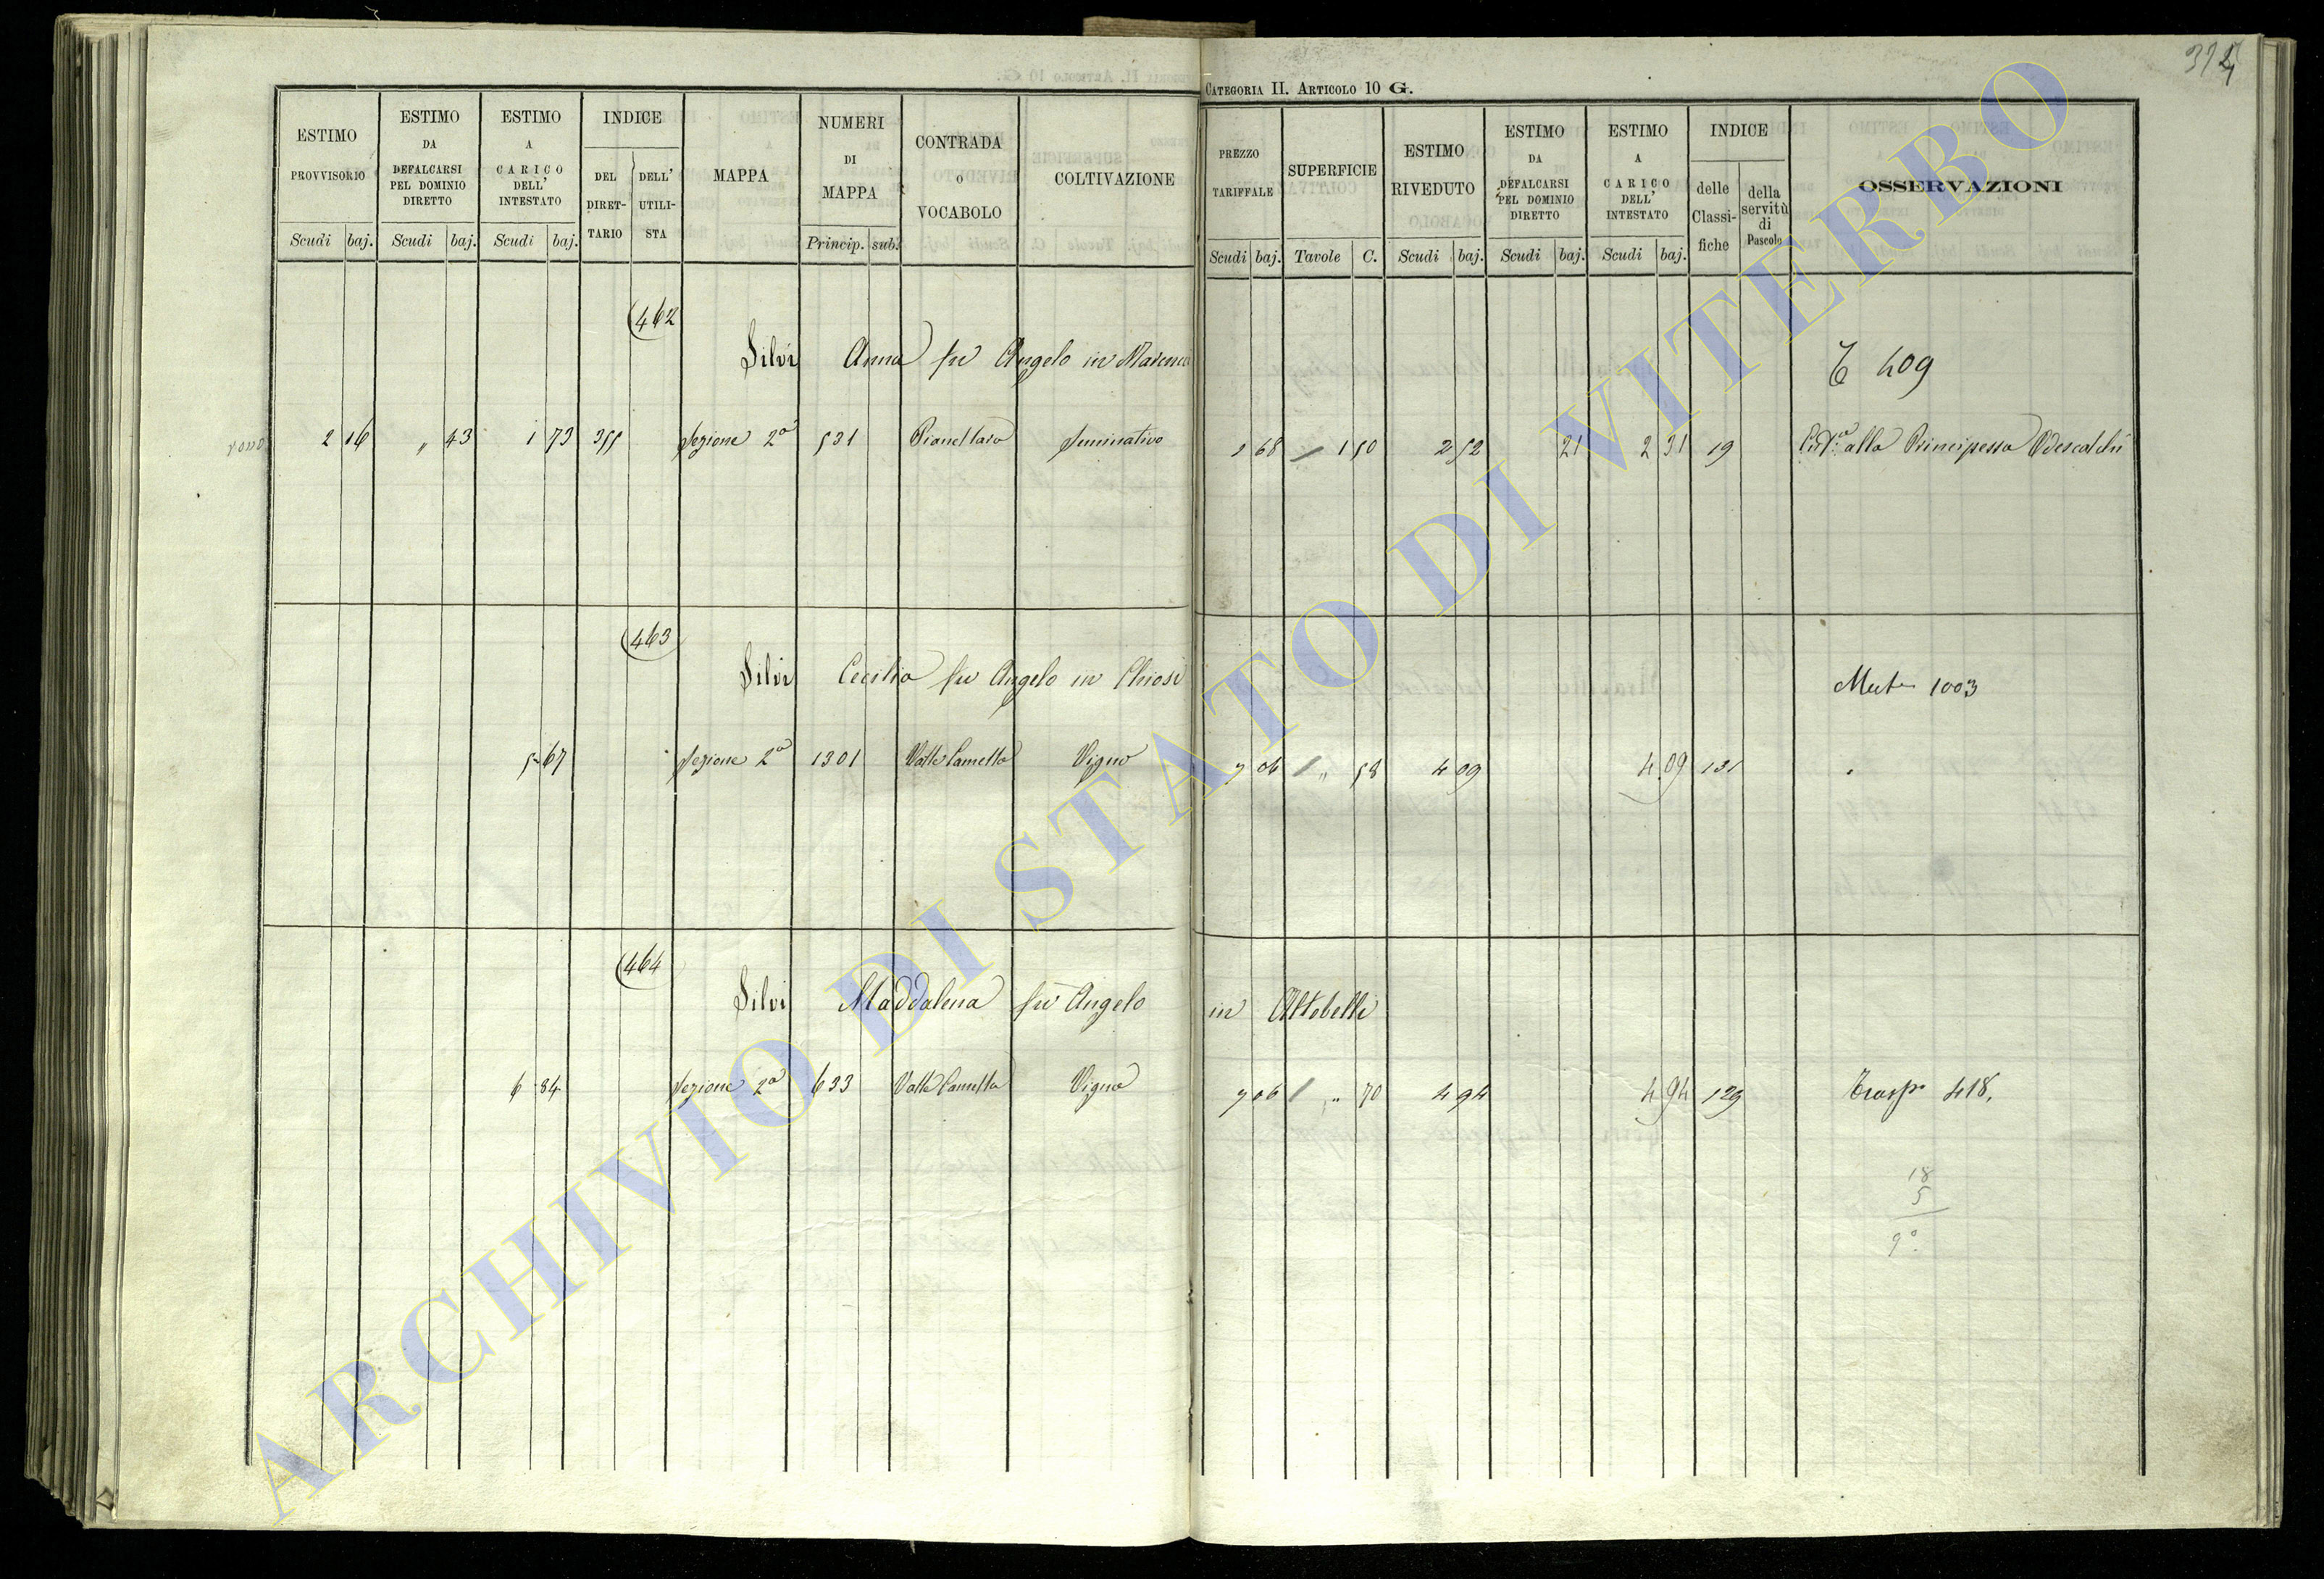 CATEGORIA II. ARTICOLO 10 G.
ESTIMO PROVVISORIO Scudi baj.
ESTIMO DA DEFALCARSI PEL DOMINIO DIRETTO Scudi baj.
ESTIMO A CARICO DELL' INTESTATO Scudi baj.
INDICE DEL DIRETTARIO DELL' UTILISTA
MAPPA
NUMERI DI MAPPA Princip. sub.
CONTRADA O VOCABOLO
COLTIVAZIONE
PREZZO TARIFFALE Scudi baj.
SUPERFICIE Tavole C.
ESTIMO RIVEDUTO Scudi baj.
ESTIMO DA DEFALCARSI PEL DOMINIO DIRETTO Scudi baj.
ESTIMO A CARICO DELL' INTESTATO Scudi baj.
INDICE delle Classifiche della servitù di Pascolo
OSSERVAZIONI
462
Silvi Anna fu Angelo in
409
2 16 " 43 1 73 355 Sezione 2a 531 Seminativo 1 68 1 50 2 52 21 2 31 19 alla Principessa Odescalchi
463
Silvi Cecilia fu Angelo in Chiosi
1003
5 67 Sezione 2a 1301 Valle Vigna 7 06 " 58 4 09 4 09 131
464
Silvi Maddalena fu Angelo in Altobelli
6 84 Sezione 2a 633 Valle Vigna 7 06 " 70 4 94 4 94 129 Trasp 418.
18
5
9°
ARCHIVIO DI STATO DI VITERBO